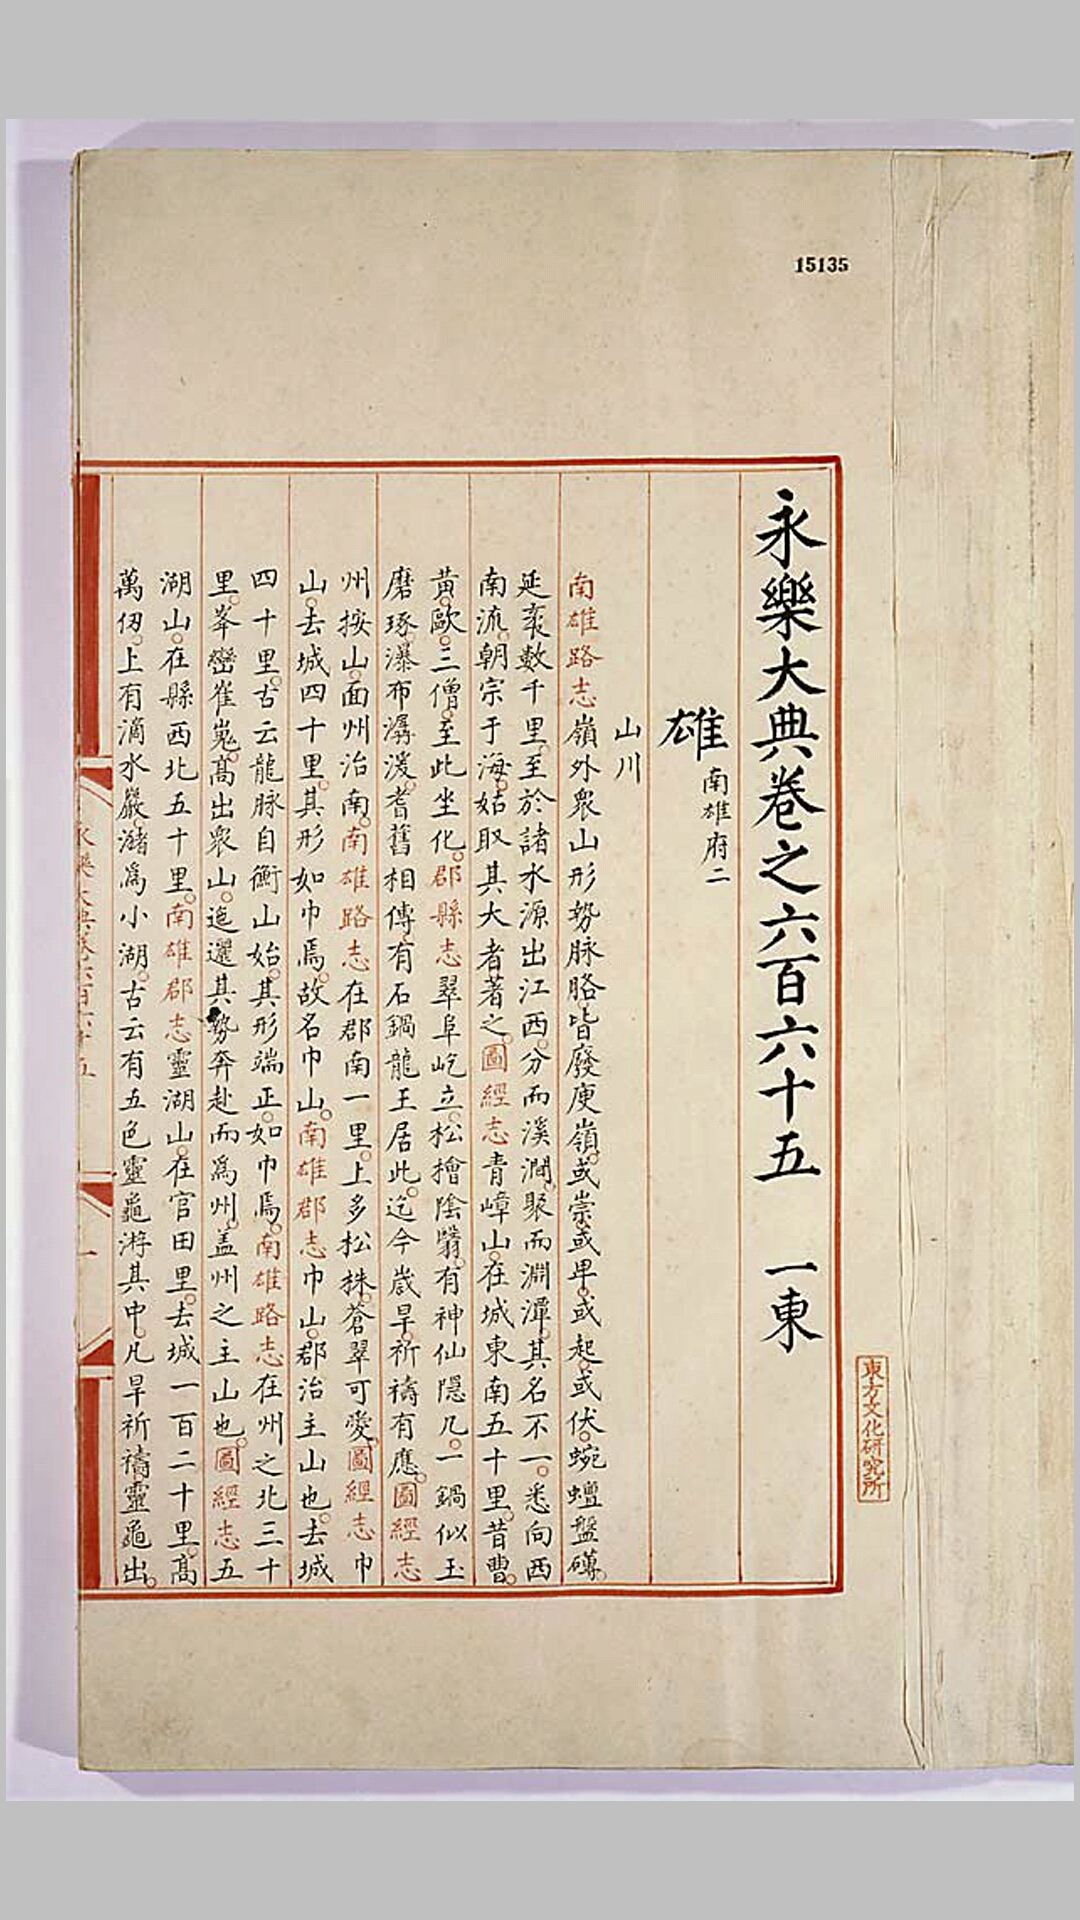 15135
永樂大典卷之六百六十五 一東
雄 南雄府二
山川
南雄路志嶺外衆山形勢脉胳皆廢庾嶺或崇或卑或起或伏蜿蟺盤礴
延袤數千里至於諸水源出江西分而溪澗聚而淵潭其名不一悉向西
南流朝宗于海姑取其大者著之圖經志青嶂山在城東南五十里昔曹
黄歐三僧至此坐化郡縣志翠阜屹立松檜陰翳有神仙隱几一鍋似玉
磨琢瀑布潺湲耆舊相傳有石鍋龍王居此迄今歲旱祈禱有應圖經志
州按山面州治南南雄路志在郡南一里上多松株蒼翠可愛圖經志巾
山去城四十里其形如巾焉故名巾山南雄郡志巾山郡治主山也去城
四十里古云龍脉自衡山始其形端正如巾焉南雄路志在州之北三十
里峯巒崔嵬髙出衆山迤邐其勢奔赴而爲州盖州之主山也圖經志五
湖山在縣西北五十里南雄郡志靈湖山在官田里去城一百二十里髙
萬仞上有滴水巖瀦爲小湖古云有五色靈龜游其中凡旱祈禱靈龜出
永樂大典卷六百六十五
一
東方文化研究所